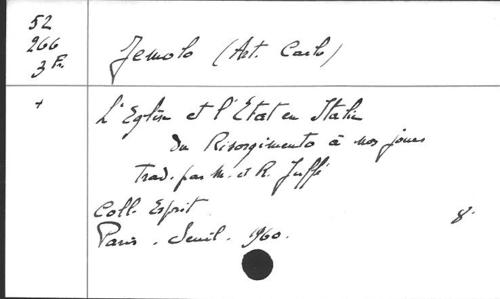 52
266
3 Fr.
Jemolo (Art. Carlo)
+
L'Eglise et l'Etat en Italie
du Risorgimento à nos jours
Trad. par M. et R. Juffé
Coll. Esprit
8°
Paris. Seuil. 1960.